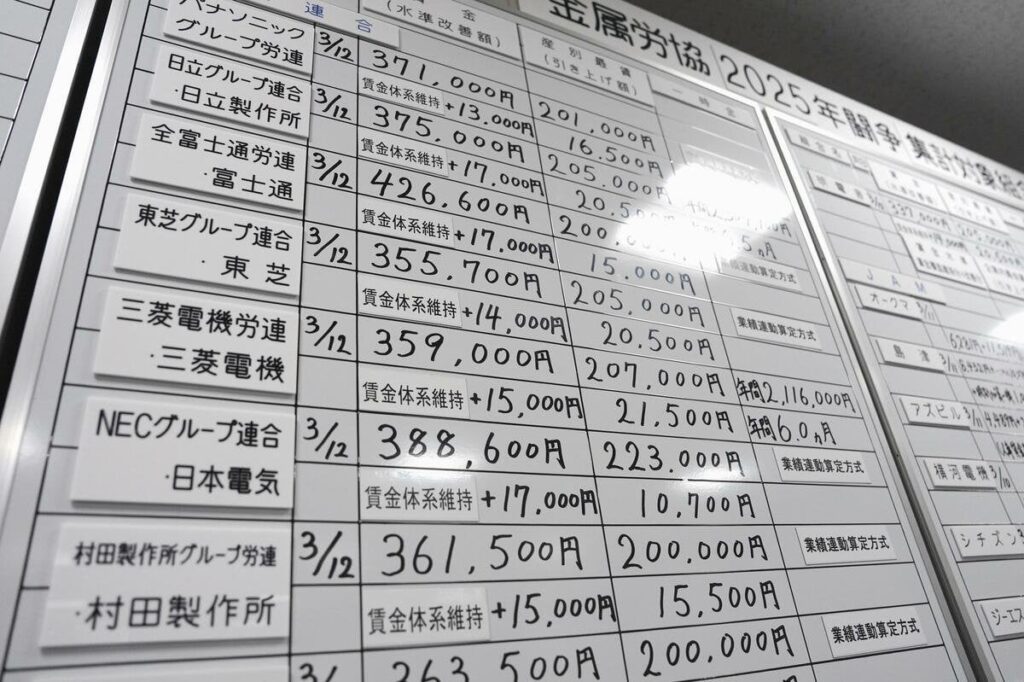 金属労協 2025年闘争 集計対象組合
連合
(水準改善額)
産別最賃
(引き上げ額)
一時金
パナソニック
グループ労連
3/12
371,000円
201,000円
賃金体系維持 +13,000円
16,500円
日立グループ連合
・日立製作所
3/12
375,000円
205,000円
賃金体系維持 +17,000円
20,500円
全富士通労連
・富士通
3/12
426,600円
賃金体系維持 +17,000円
15,000円
業績連動算定方式
東芝グループ連合
・東芝
3/12
355,700円
205,000円
業績連動算定方式
賃金体系維持 +14,000円
20,500円
三菱電機労連
・三菱電機
3/12
359,000円
207,000円
年間2,116,000円
賃金体系維持 +15,000円
21,500円
年間6.0ヵ月
NECグループ連合
・日本電気
3/12
388,600円
223,000円
業績連動算定方式
賃金体系維持 +17,000円
10,700円
村田製作所グループ労連
・村田製作所
3/12
361,500円
200,000円
業績連動算定方式
賃金体系維持 +15,000円
15,500円
363,500円
200,000円
業績連動算定方式
JAM
オークマ
島津 3/11
アズビル 3/11
横河電機 3/10
シチズン
ジーエス